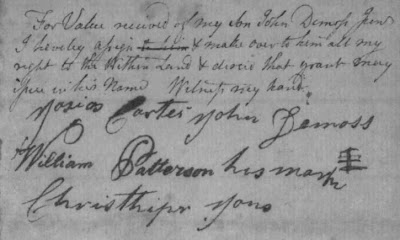 For Value received of my Son John Demoss Junr
I hereby assign & make over to him all my
right to the Within Land & desire that grant may
Issue in his Name Witness my hand
Yosias Carter John Demoss
William Patterson his mark
Christhipr Yons